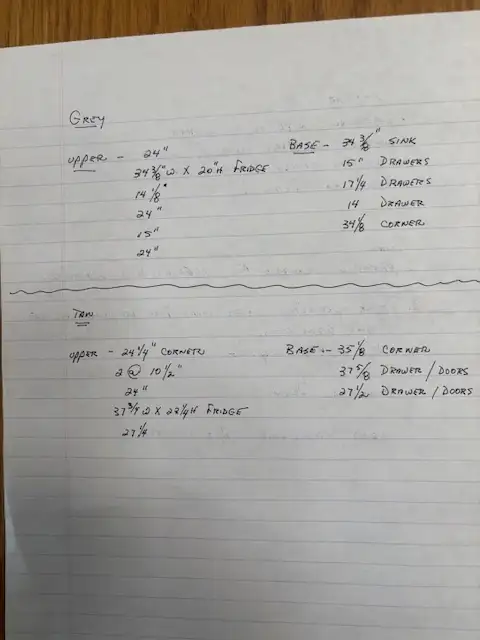 GREY
UPPER - 24"
34 3/8" W X 20" H FRIDGE
14 1/8"
24"
15"
24"
BASE - 34 3/8" SINK
15" DRAWERS
17 1/4 DRAWERS
14 DRAWER
34 1/8 CORNER
TAN
UPPER - 24 1/4" CORNER
2 @ 10 1/2"
24"
37 3/4 W X 22 1/4 H FRIDGE
27 1/4
BASE - 35 1/8 CORNER
37 5/8 DRAWER / DOORS
27 1/2 DRAWER / DOORS